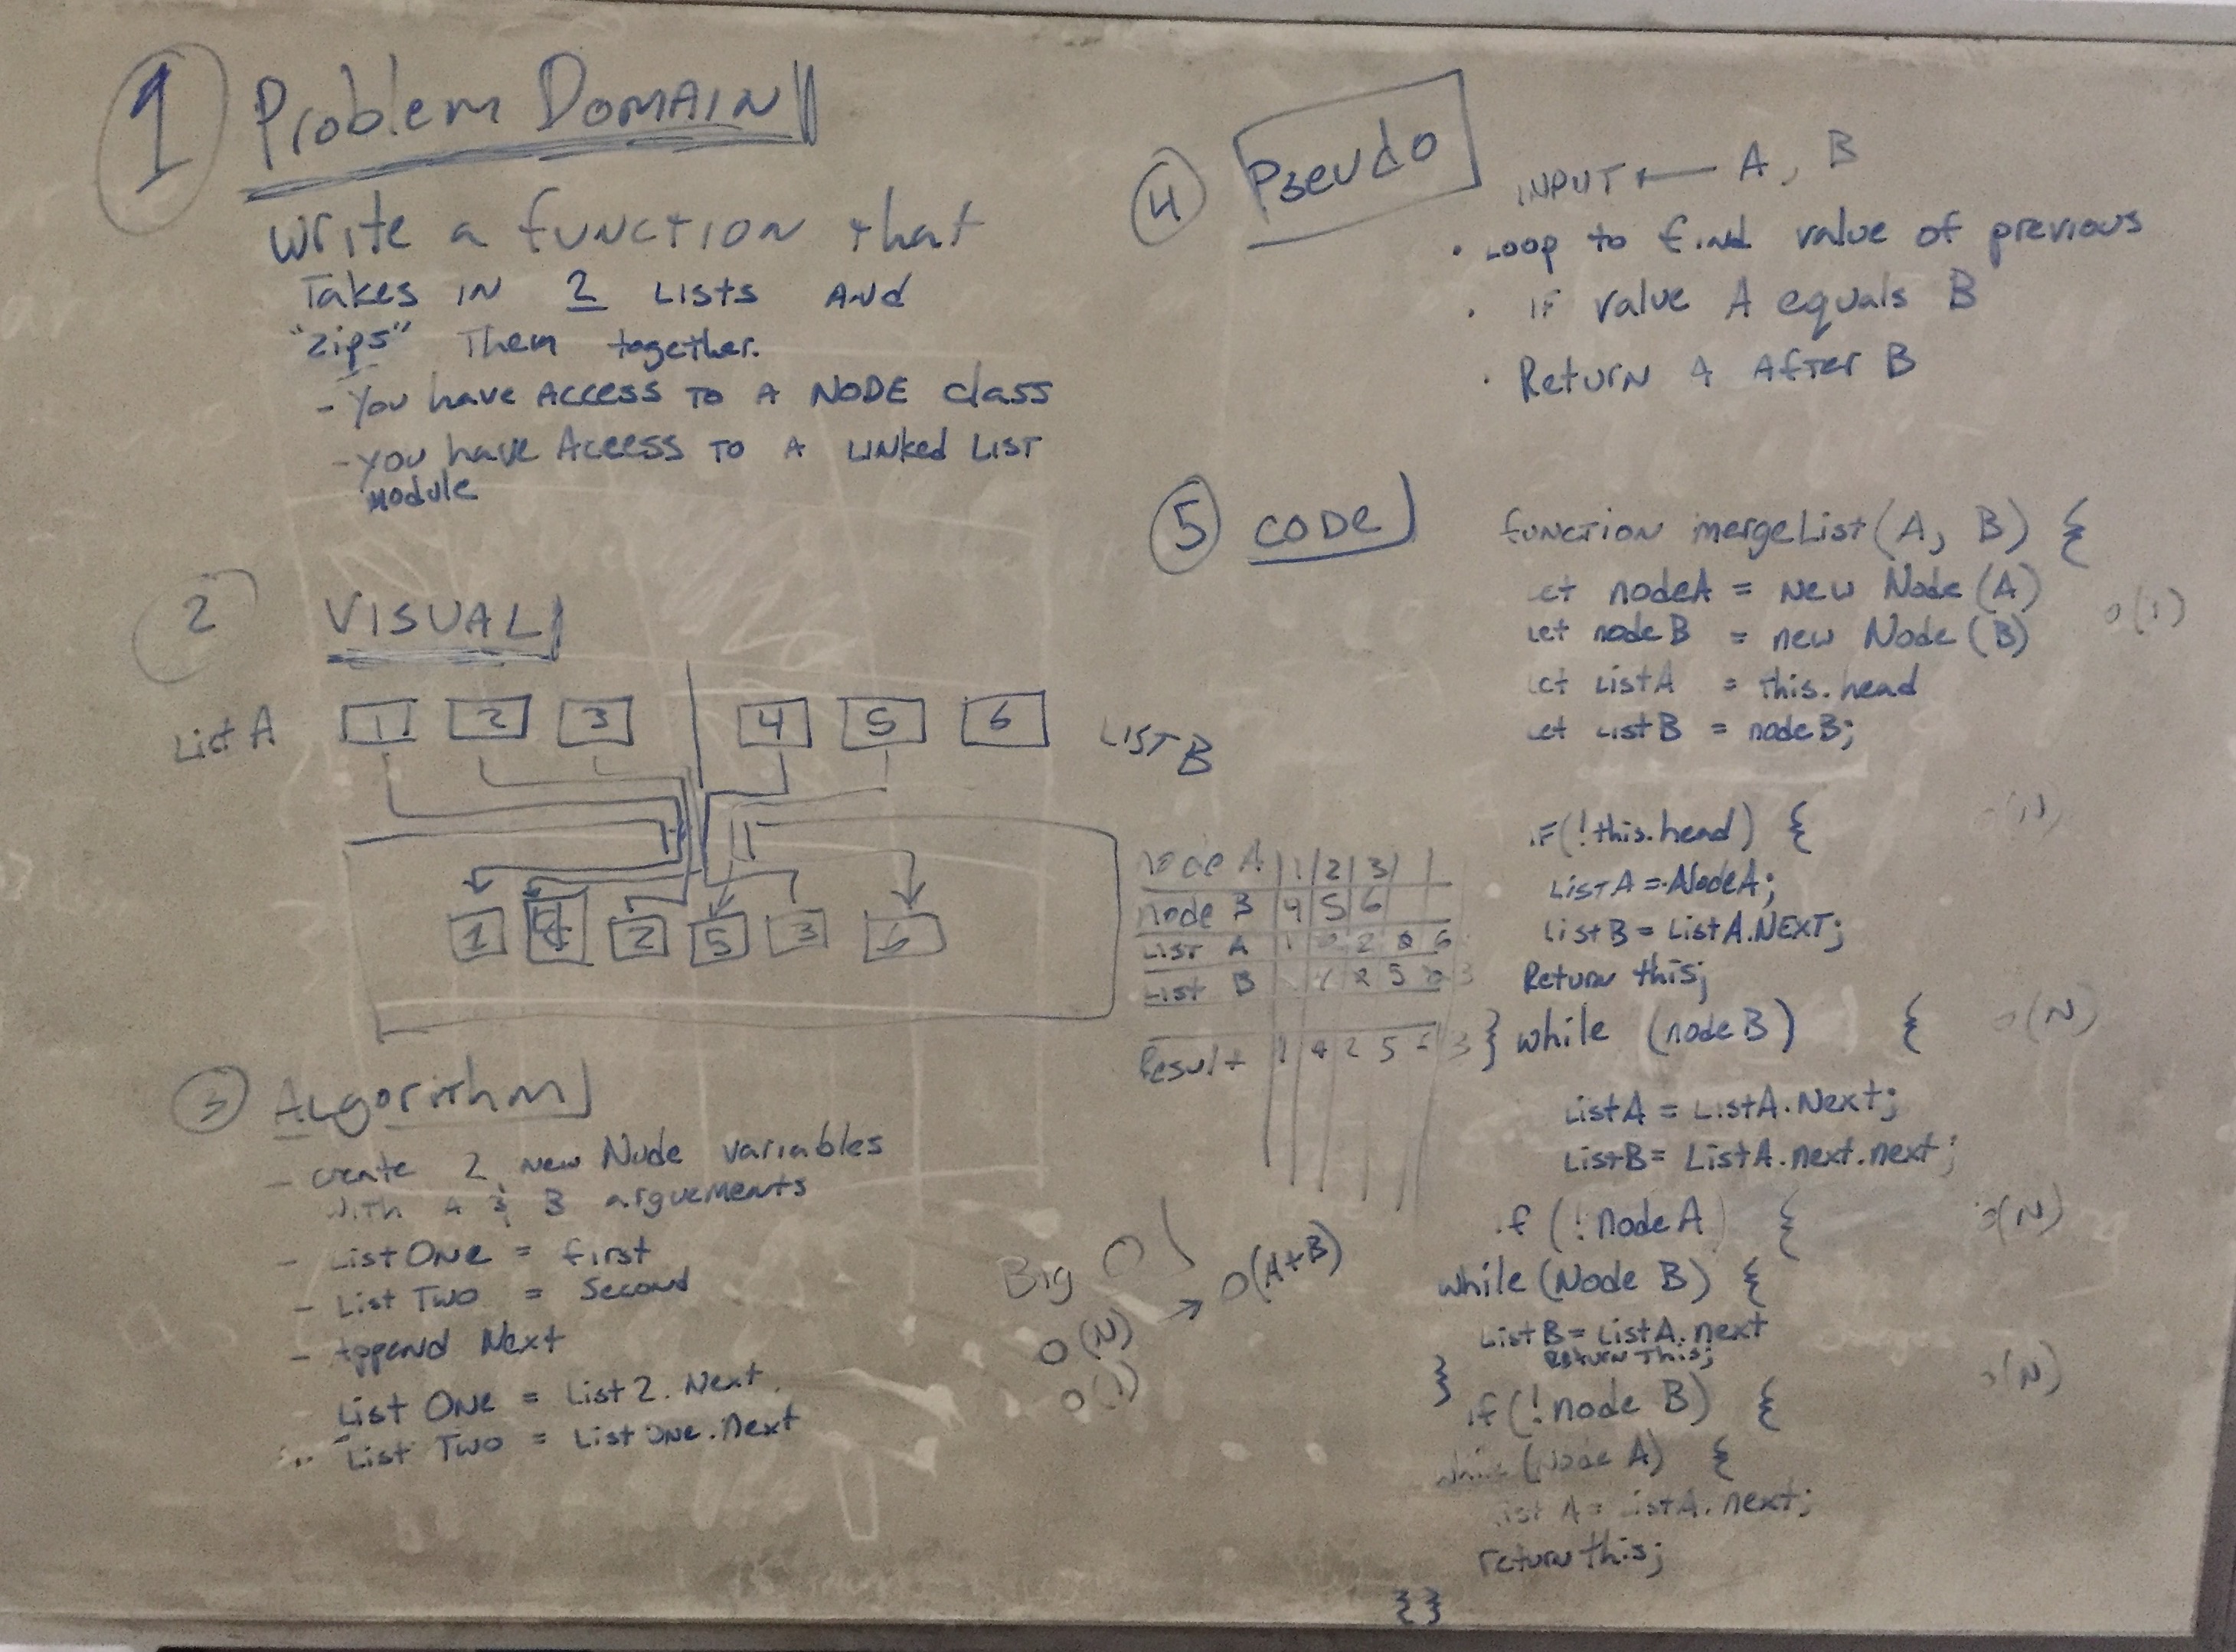 1 Problem DOMAIN
Write a function that
Takes in 2 Lists and
"zips" Them together.
- You have Access To A NODE class
- you have Aceess To A Linked List
Module
2 VISUAL
List A 1 2 3 4 5 6 LIST B
1 4 2 5 3 6
3 Algorithm
- create 2 new Node variables
with A & B arguements
- List One = first
- List Two = Second
- Append Next
List One = List2.Next
List Two = ListOne.next
4 Pseudo
INPUT ← A, B
• Loop to find value of previous
• if value A equals B
• Return A After B
5 CODE
function mergeList(A, B) {
let nodeA = new Node(A)
let nodeB = new Node(B) O(1)
let ListA = this.head
let ListB = nodeB;
if(!this.head) {
ListA = NodeA;
ListB = ListA.NEXT;
Return this;
} while (nodeB) { O(N)
ListA = ListA.Next;
ListB = ListA.next.next;
if (!nodeA) { O(N)
while (Node B) {
ListB = ListA.next
Return This;
}
if (!node B) { O(N)
while (Node A) {
List A = ListA.next;
return this;
}}
Node A 1 2 3
node B 4 5 6
List A 1 2 6
List B 2 5 3
Result 1 4 2 5 3
Big O
O(N) → O(A+B)
O(1)